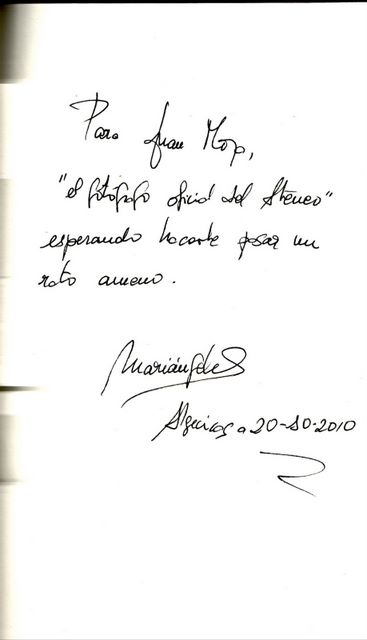 Para Juan Moya,
"el fotógrafo oficial del Ateneo"
esperando hacerte pasar un
rato ameno.
Mariángeles
Algeciras a 20-10-2010